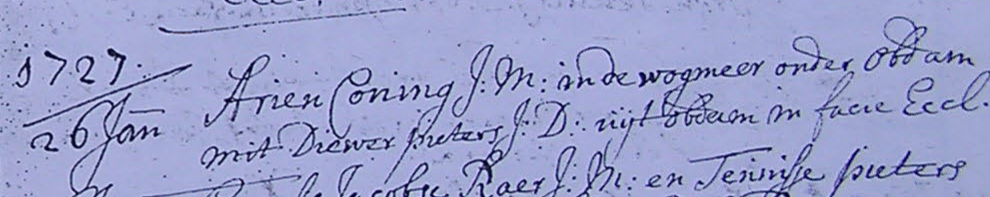 1727.
26 Jan
Arien Coning J: M: in de wogmeer onder obdam
mit Diewer pieters J: D: uijt obdam in facie Eccl.
Jacobse Raer J: M: en Teunisse pieters